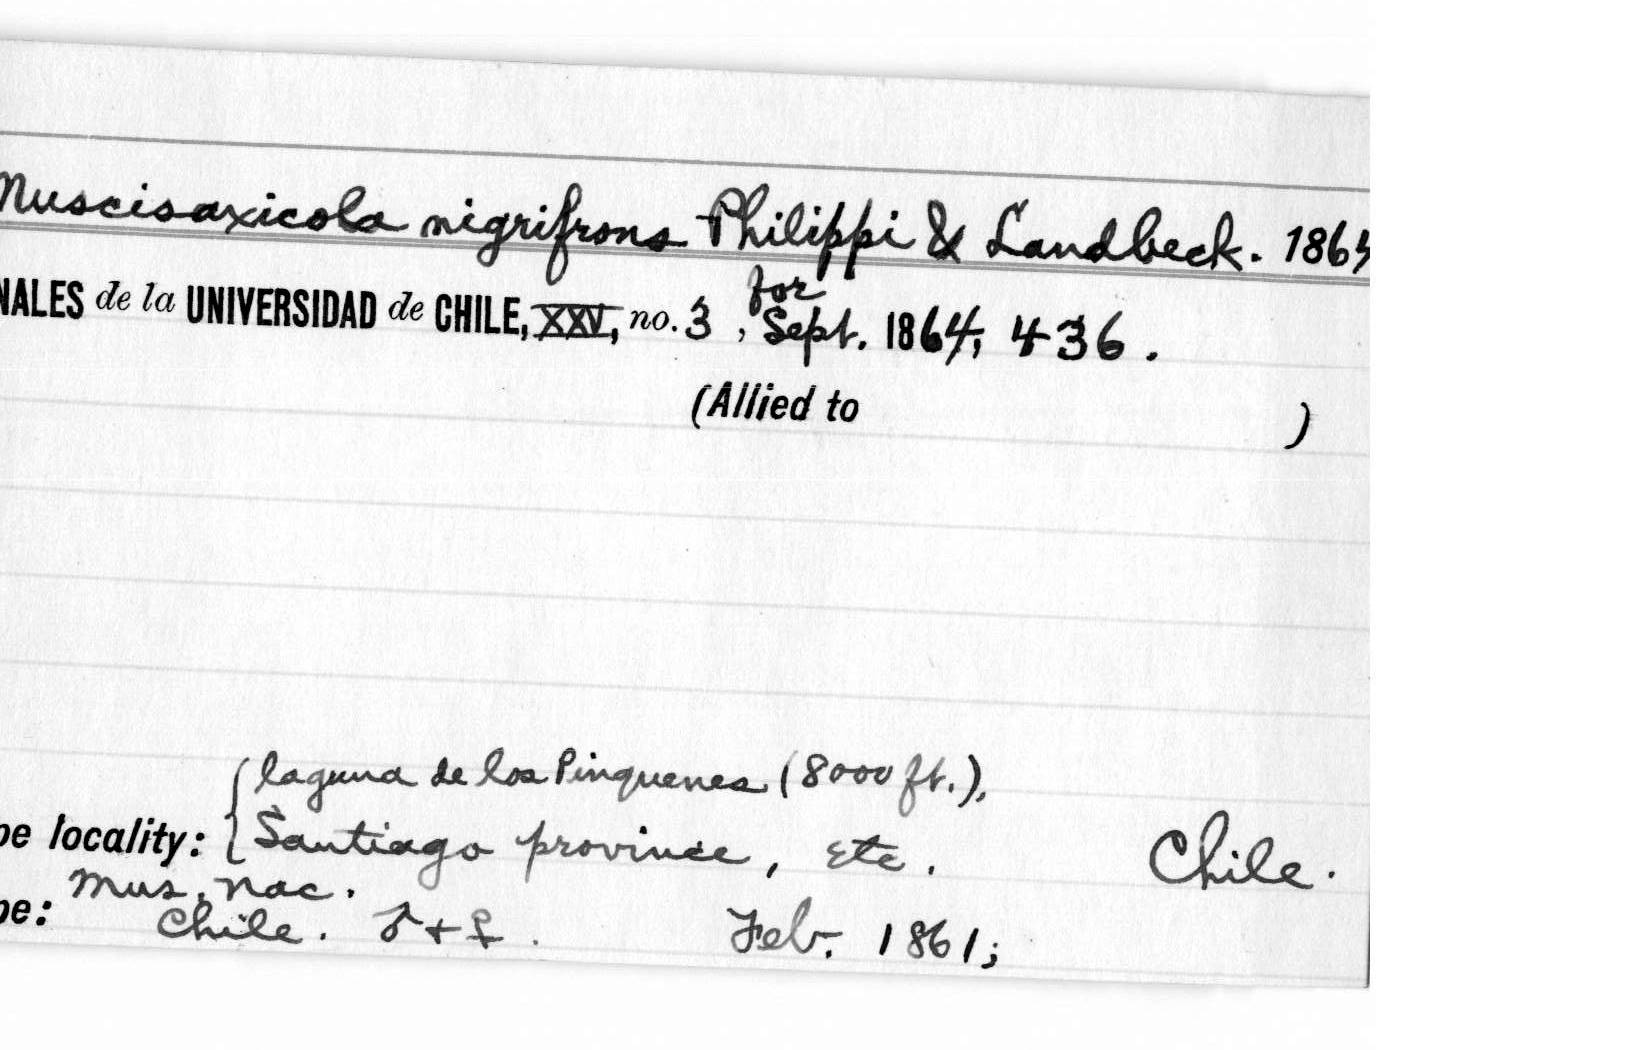 Muscisaxicola nigrifrons Philippi & Landbeck. 1864
NALES de la UNIVERSIDAD de CHILE, XXV, no. 3, for Sept. 1864, 436.
(Allied to )
laguna de los Pinquenes (8000 ft.),
pe locality: Santiago province, etc. Chile.
Mus. nac.
pe: Chile. ♂ + ♀. Feb. 1861;